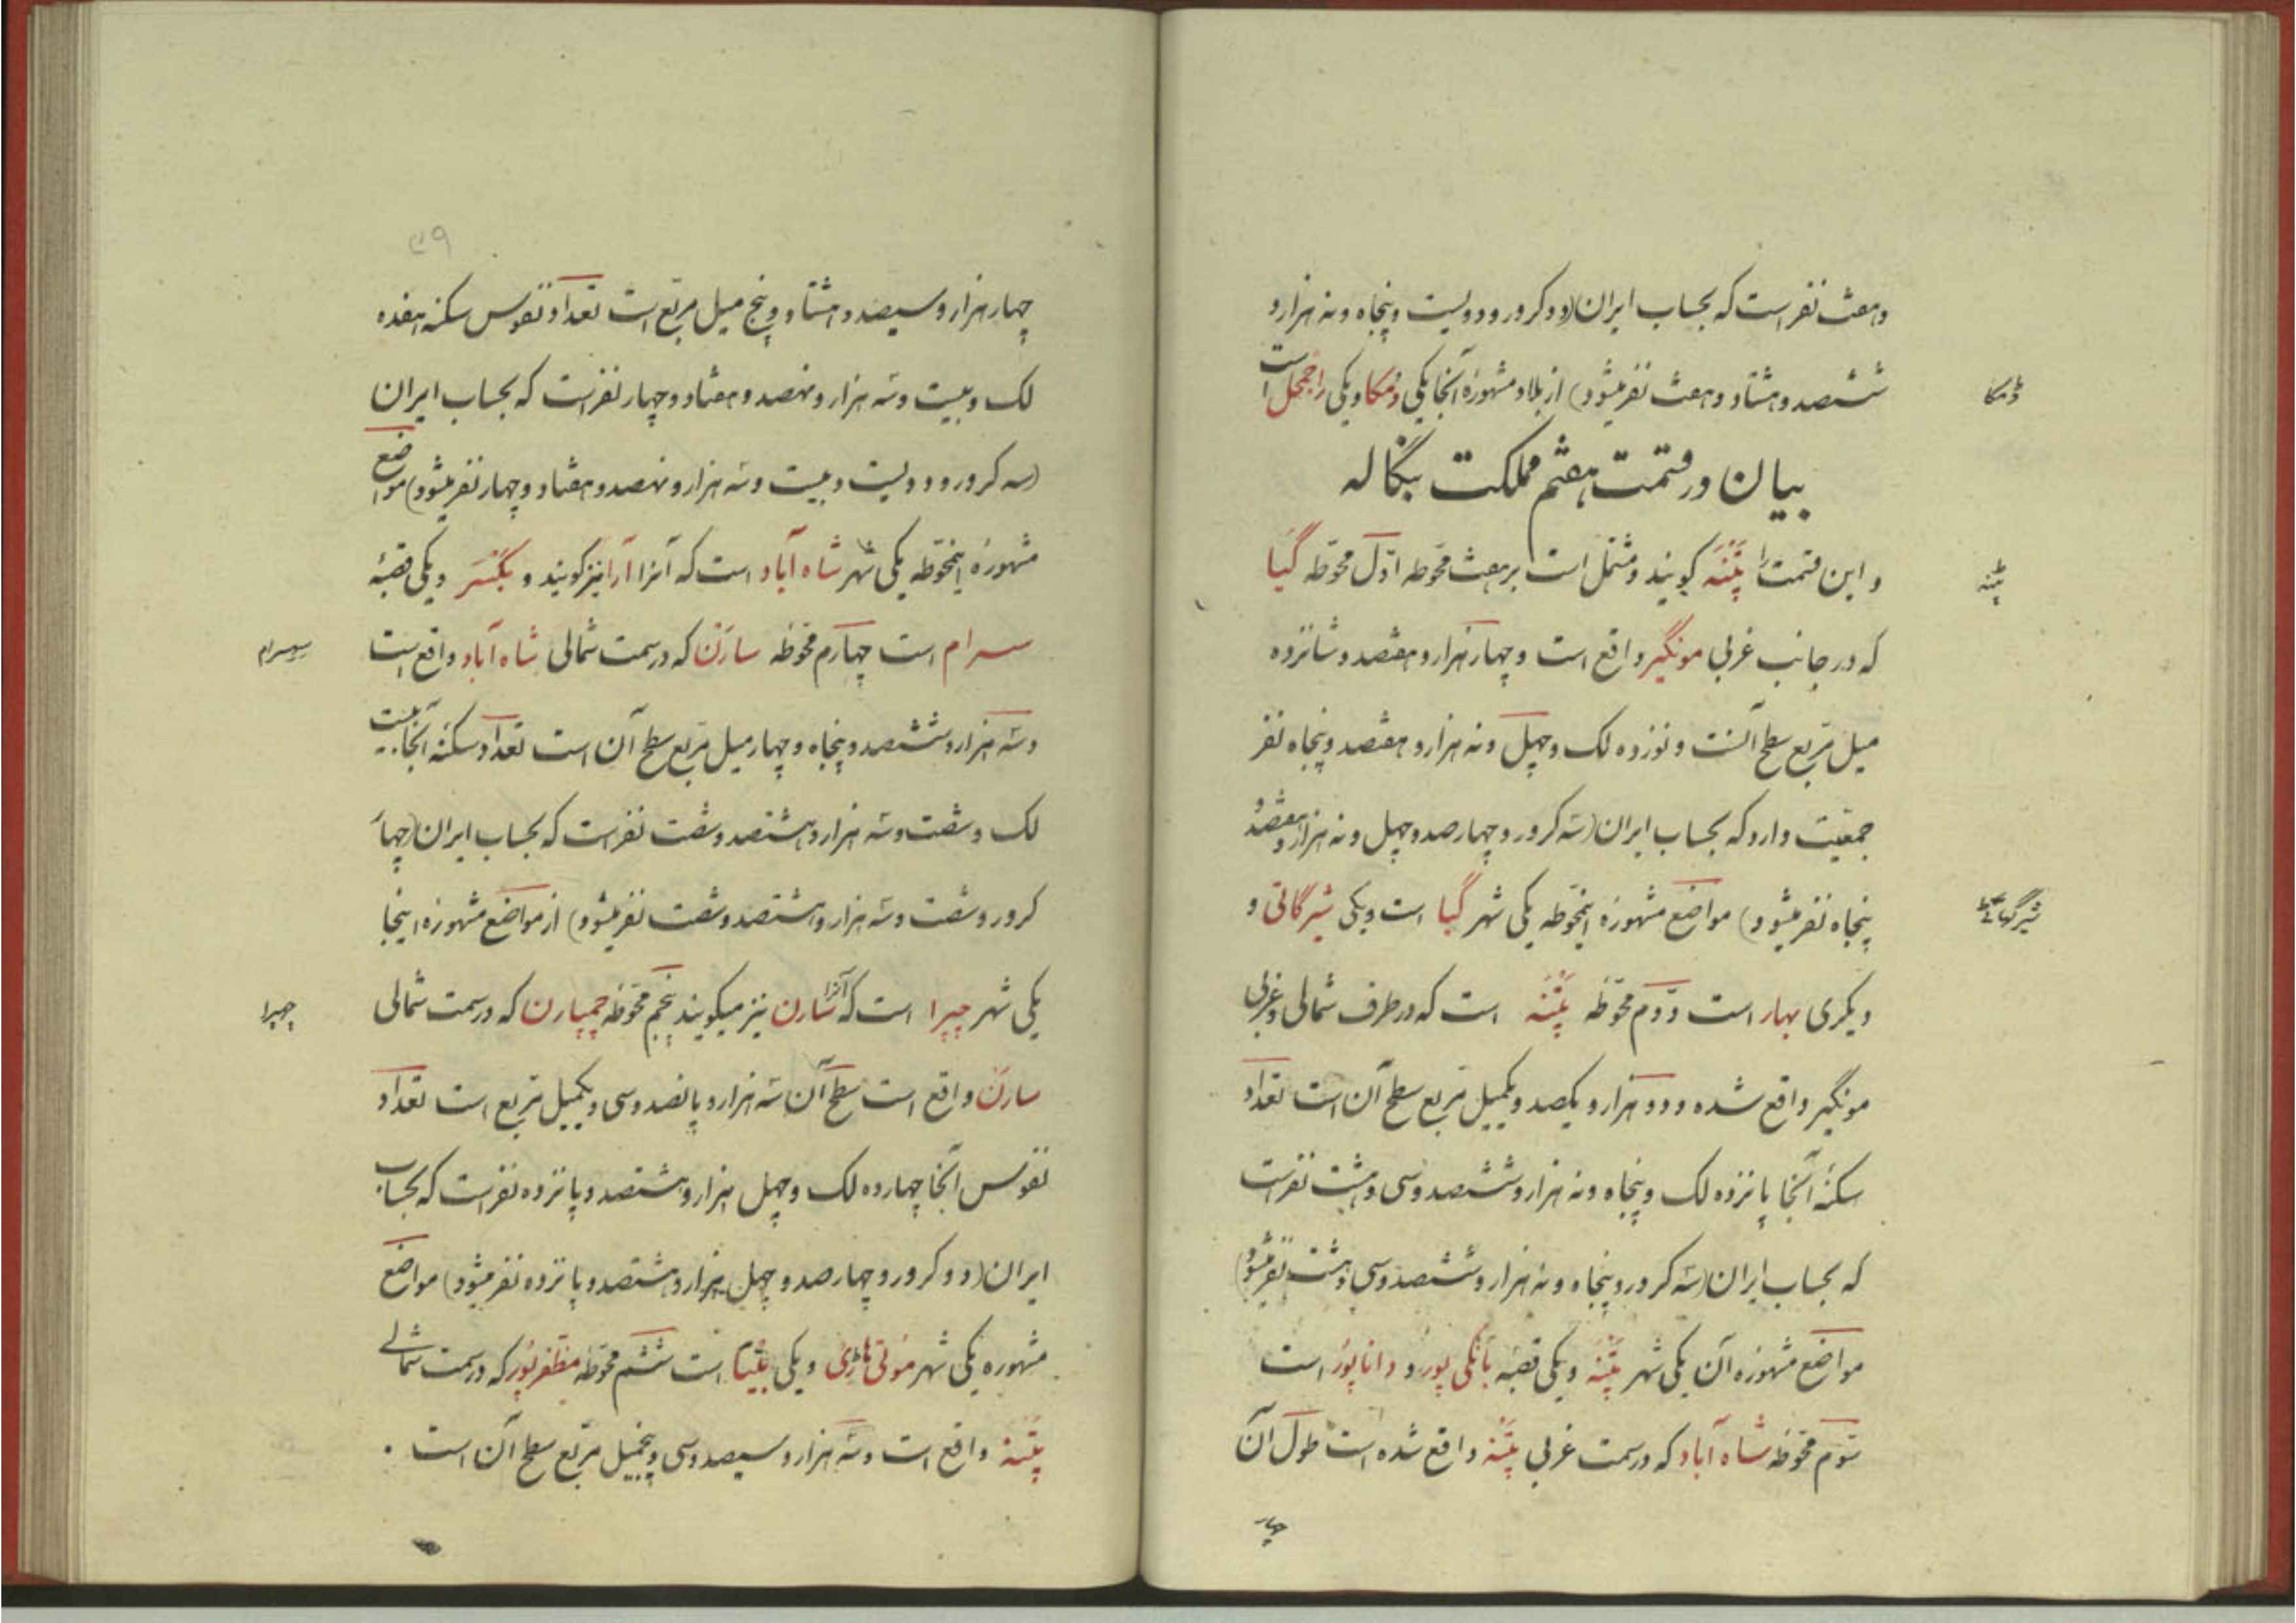 وهفت نفر است که بحساب ایران (دو کرور و دویست و پنجاه و نه هزار و
ششصد و هشتاد و هفت نفر میشود) از بلاد مشهورهٔ آنجا یکی دُمکا و یکی راجمحل است
ڈمکا
بیان در قسمت هفتم مملکت بنگاله
و این قسمت را پَتْنَه گویند و مشتمل است بر هفت محوّطه اوّل محوّطه گیا
پٹنه
که در جانب غربی مونگیر واقع است و چهار هزار و هفتصد و شانزده
میل مربّع سطح آنست و نوزده لک و چهل و نه هزار و هفتصد و پنجاه نفر
جمعیّت دارد که بحساب ایران (سه کرور و چهارصد و چهل و نه هزار و هفتصد و
پنجاه نفر میشود) مواضع مشهورهٔ اینمحوّطه یکی شهر گیا است و یکی شیرگاتی و
شیرگهاٹی
دیگری بهار است دوم محوّطه پَتْنَه است که در طرف شمالی و غربی
مونگیر واقع شده و دو هزار و یکصد و یکمیل مربع سطح آن است تعداد
سکنهٔ آنجا پانزده لک و پنجاه و نه هزار و ششصد و سی و هشت نفر است
که بحساب ایران (سه کرور و پنجاه و نه هزار و ششصد و سی و هشت نفر میشود)
مواضع مشهورهٔ آن یکی شهر پَتْنَه و یکی قصبه بانکی پور و داناپور است
سوم محوّطه شاه آباد که در سمت غربی پتنه واقع شده است طول آن
چهار
۳۹
چهار هزار و سیصد و هشتاد و پنج میل مربّع است تعداد نفوس سکنه هفده
لک و بیست و سه هزار و نهصد و هفتاد و چهار نفر است که بحساب ایران
(سه کرور و دویست و بیست و سه هزار و نهصد و هفتاد و چهار نفر میشود) مواضع
مشهورهٔ اینمحوّطه یکی شهر شاه آباد است که آنرا آرا نیز گویند و بکسَر و یکی قصبهٔ
سسرام است چهارم محوّطه سارن که در سمت شمالی شاه آباد واقع است
سهسرام
و سه هزار و ششصد و پنجاه و چهار میل مربّع سطح آن است تعداد سکنهٔ آنجا بیست
لک و شصت و سه هزار و هشتصد و شصت نفر است که بحساب ایران (چهار
کرور و شصت و سه هزار و هشتصد و شصت نفر میشود) از مواضع مشهورهٔ اینجا
یکی شهر چپرا است که آنرا سارن نیز میگویند پنجم محوّطه چمپارن که در سمت شمالی
چهپرا
سارن واقع است سطح آن سه هزار و پانصد و سی و یکمیل مربع است تعداد
نفوس آنجا چهارده لک و چهل هزار و هشتصد و پانزده نفر است که بحساب
ایران (دو کرور و چهارصد و چهل هزار و هشتصد و پانزده نفر میشود) مواضع
مشهوره یکی شهر موتی هاڑی و یکی بتیا است ششم محوّطه مظفرپور که در سمت شمالی
پتنه واقع است و سه هزار و سیصد و سی و پنجمیل مربّع سطح آن است